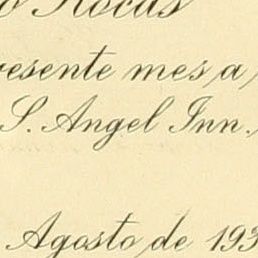 o Rocas
resente mes a
S. Angel Inn.
Agosto de 193